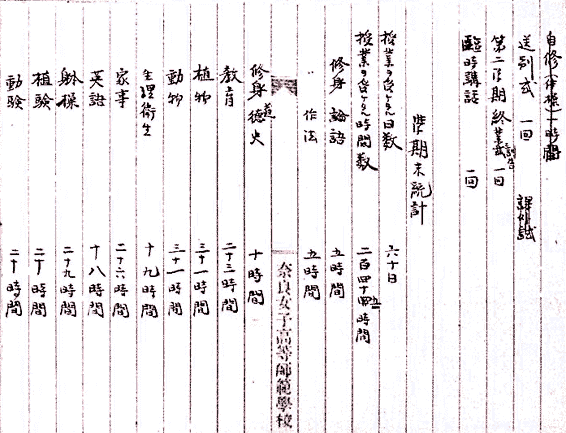 自修(筆標)一時間
送別式 一回 課外試
第二学期終業式訓告 一回
臨時講話 二回
学期末統計
授業ヲ受ケタル日数 六十日
授業ヲ受ケタル時間数 二百四十四時間
修身 論語 五時間
作法 五時間
奈良女子高等師範學校
修身 道徳史 十時間
教育 二十三時間
植物 三十一時間
動物 三十一時間
生理衛生 十九時間
家事 二十六時間
英語 十八時間
躰操 二十九時間
植験 二十時間
動験 二十時間